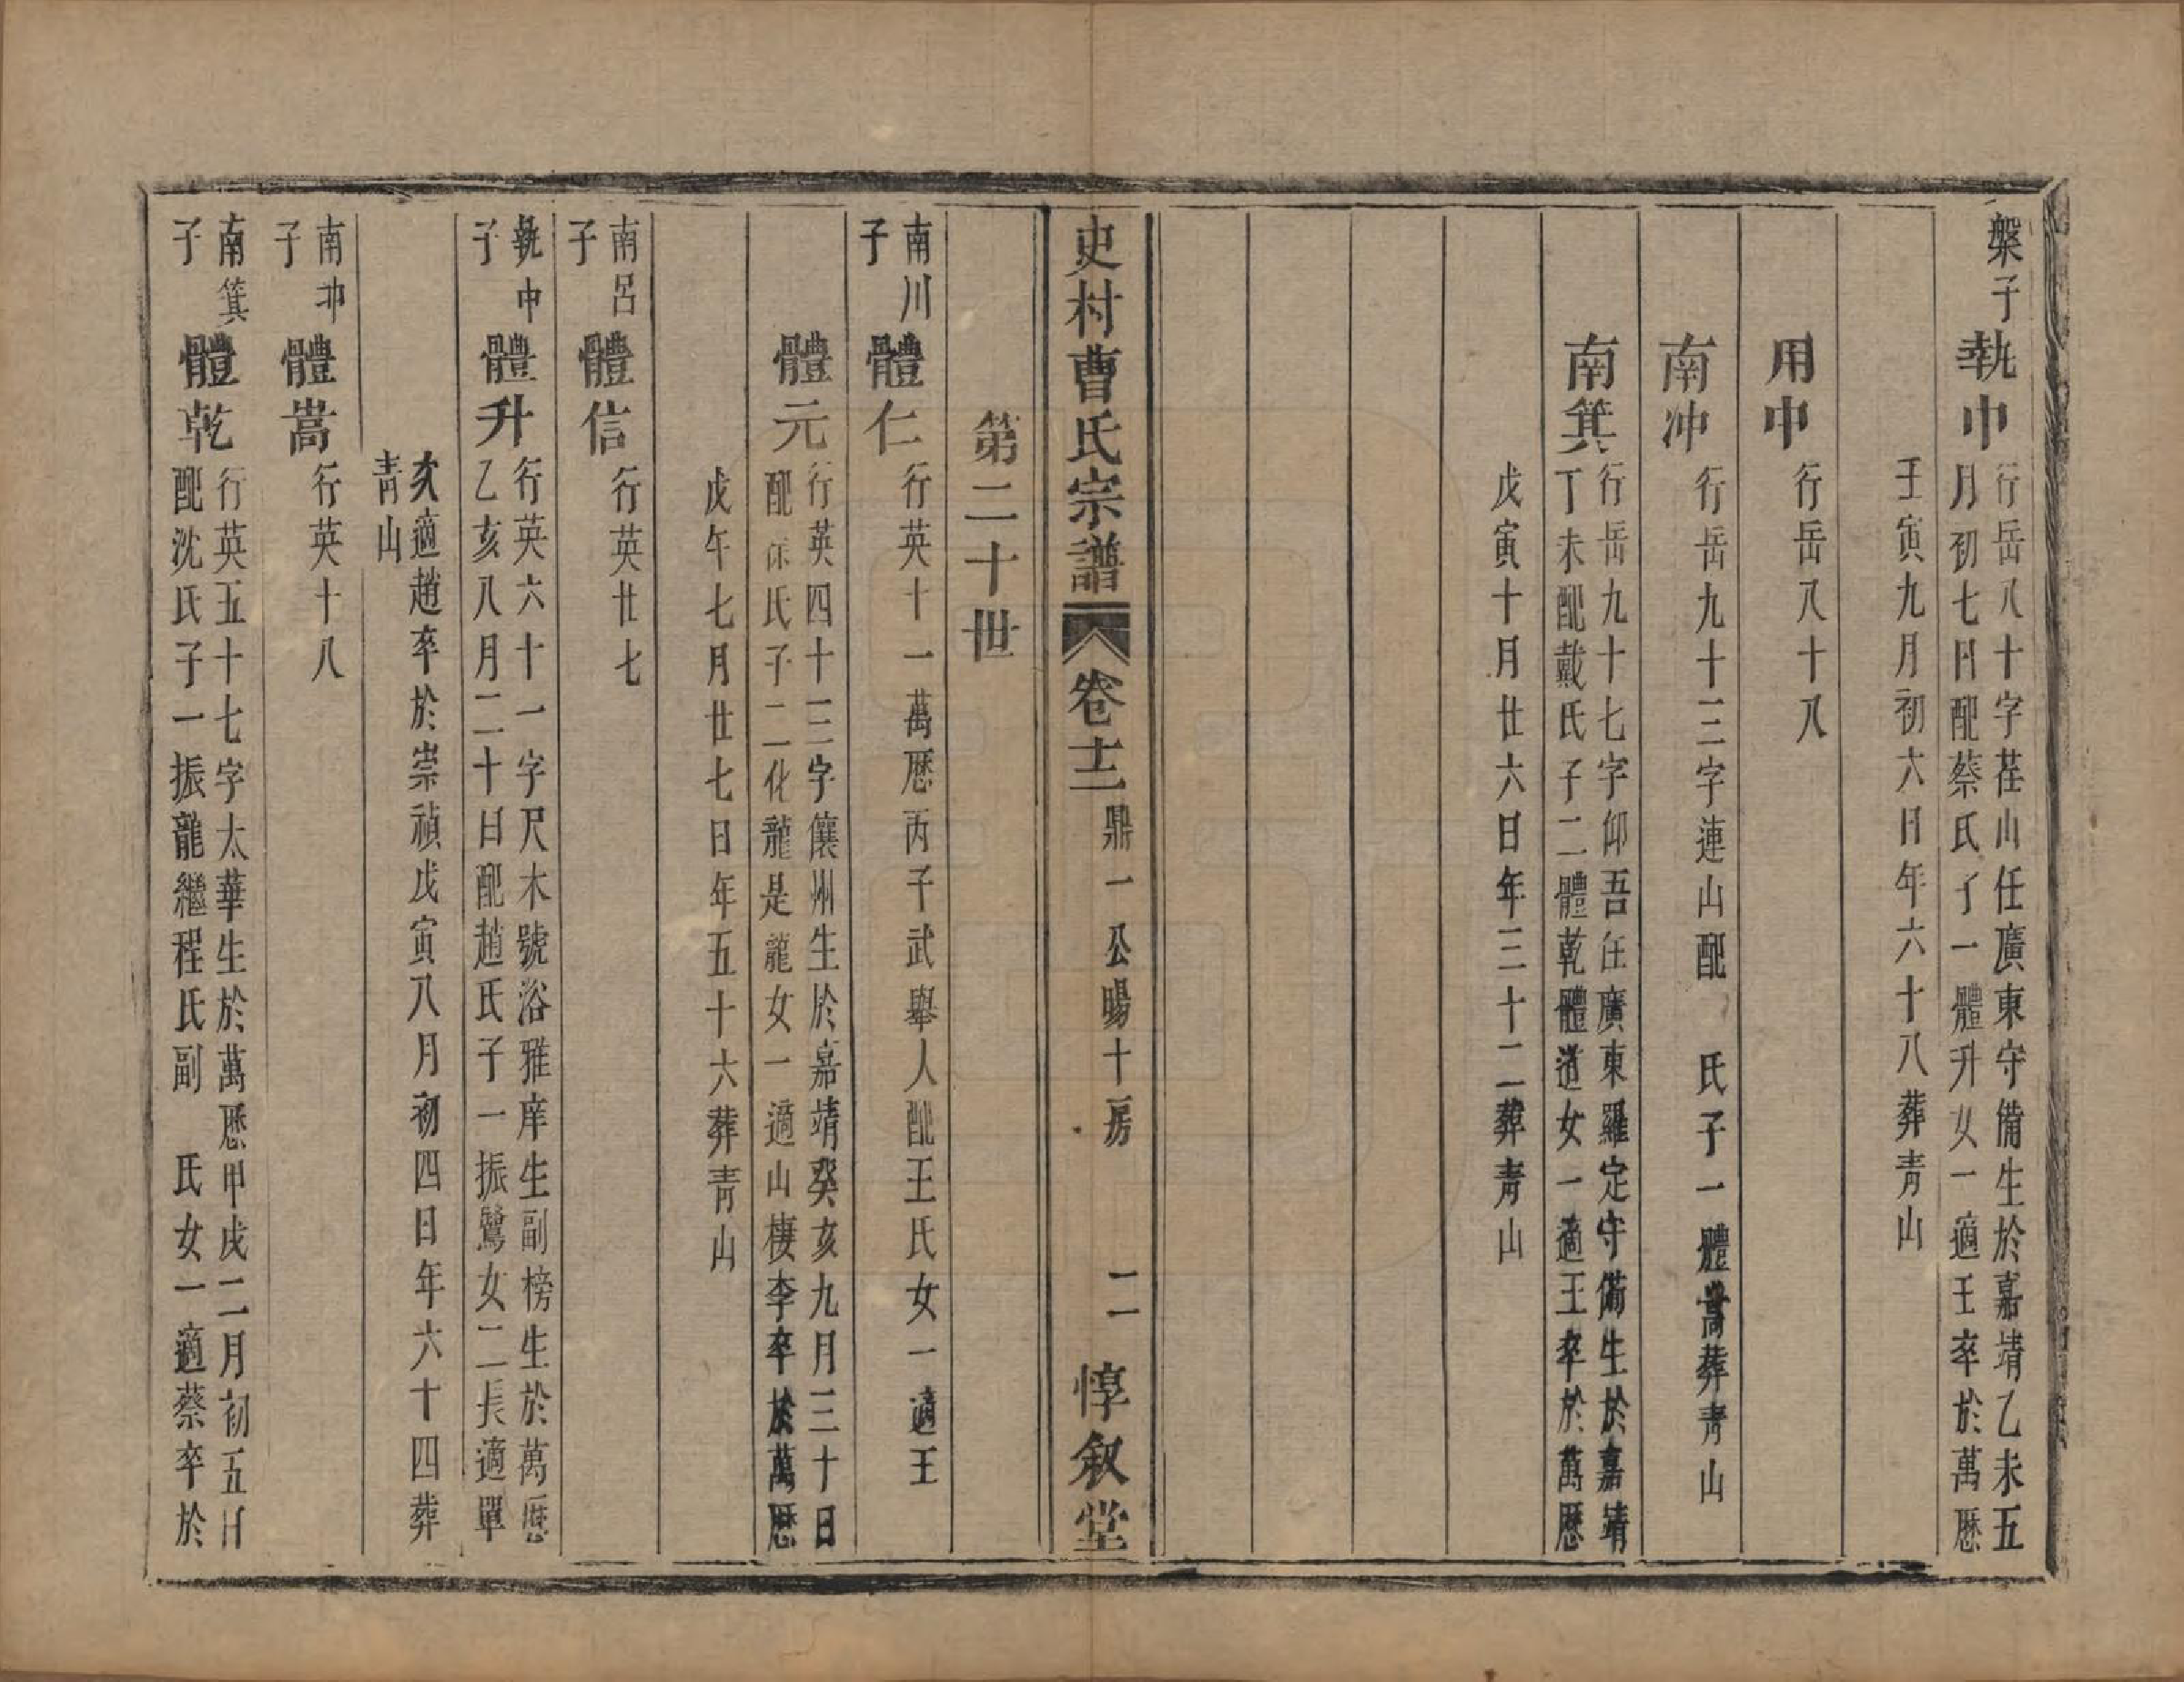 槃子
執中
行岳八十字荏山任廣東守備生於嘉靖乙未五
月初七日配蔡氏子一體升女一適王卒於萬歷
壬寅九月初六日年六十八葬青山
用中
行岳八十八
南冲
行岳九十三字連山配 氏子一體嵩葬青山
南箕
行岳九十七字仰吾任廣東羅定守備生於嘉靖
丁未配戴氏子二體乾體道女一適王卒於萬歷
戊寅十月廿六日年三十二葬青山
史村曹氏宗譜 卷十二 鼎一公暘十房 二 惇叙堂
第二十世
南川
子
體仁
行英十一萬歷丙子武舉人配王氏女一適王
體元
行英四十三字儀州生於嘉靖癸亥九月三十日
配 氏子二化龍是龍女一適山棲李卒於萬歷
戊午七月廿七日年五十六葬青山
南呂
子
體信
行英廿七
執中
子
體升
行英六十一字尺木號浴雅庠生副榜生於萬歷
乙亥八月二十日配趙氏子一振鷺女二長適單
次適趙卒於崇禎戊寅八月初四日年六十四葬
青山
南冲
子
體嵩
行英十八
南箕
子
體乾
行英五十七字太華生於萬歷甲戌二月初五日
配沈氏子一振龍繼程氏副 氏女一適蔡卒於